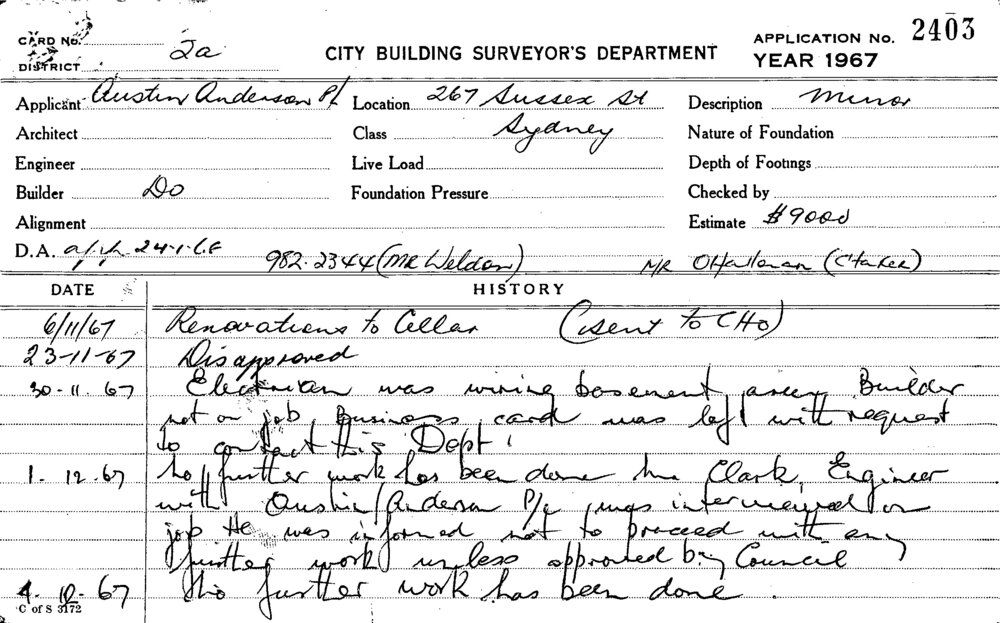 CARD No. 2a CITY BUILDING SURVEYOR'S DEPARTMENT APPLICATION No. 2403
DISTRICT YEAR 1967
Applicant Austin Anderson P/L Location 267 Sussex St Description Minor
Architect Class Sydney Nature of Foundation
Engineer Live Load Depth of Footings
Builder Do Foundation Pressure Checked by
Alignment Estimate $9000
D.A. 24-1-68 982-2344 (MR Weldon) MR O'Halloran
DATE HISTORY
6/11/67 Renovations to Cellar (sent to CHO)
23-11-67 Disapproved
30-11.67 Electrician was wiring basement area, Builder
not on job Business card was left with request
to contact this Dept.
1.12.67 No further work has been done Mr Clark, Engineer
with Austin Anderson P/L was interviewed on
job He was informed not to proceed with any
further work unless approved by Council
4.12.67 No further work has been done.
C of S 3172